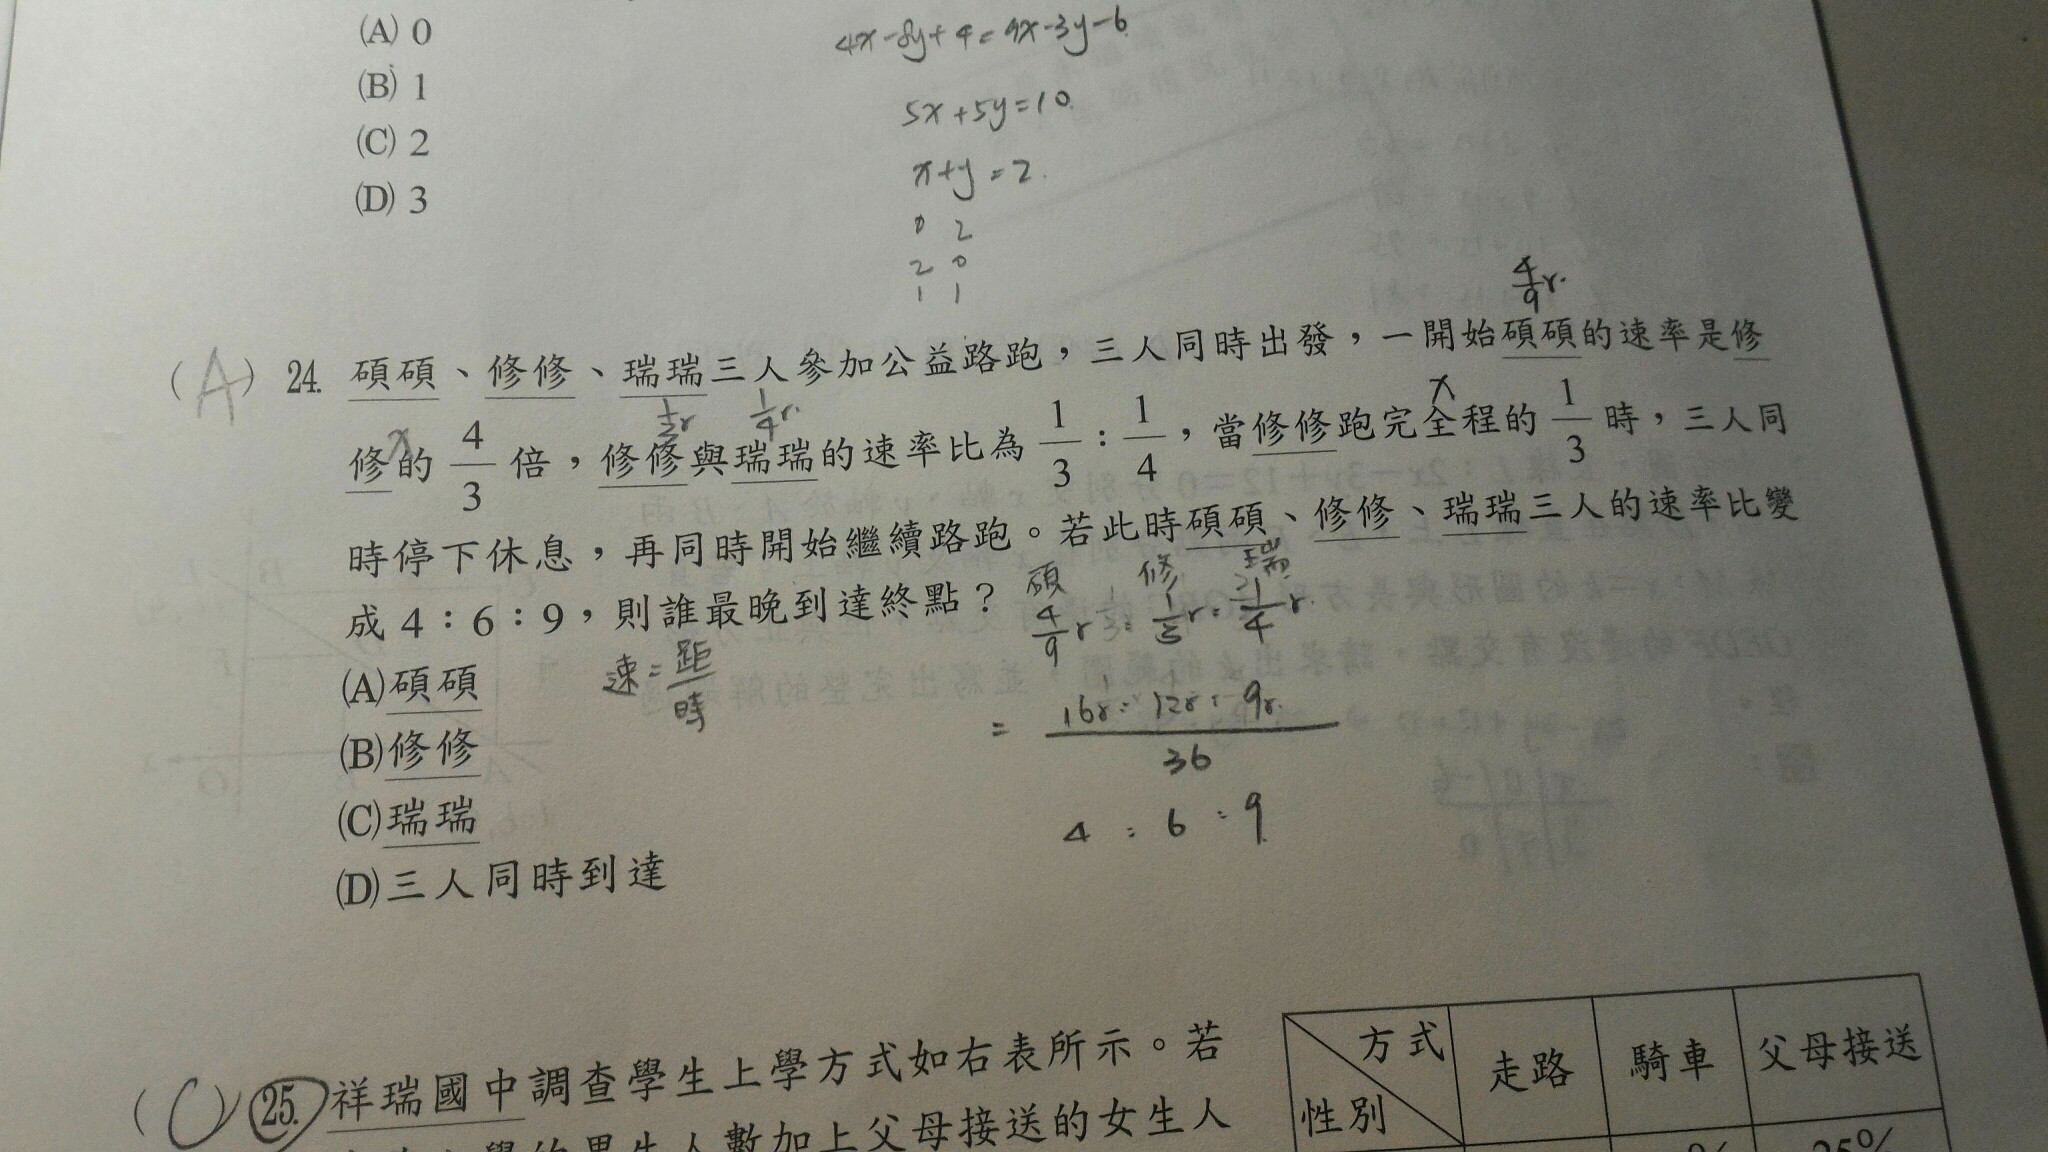 (A) 0
(B) 1
(C) 2
(D) 3
4x-8y+4=9x-3y-6
5x+5y=10
x+y=2
0 2
2 0
1 1
4/9 r
(A) 24. 碩碩、修修、瑞瑞三人參加公益路跑，三人同時出發，一開始碩碩的速率是修
1/3 r 1/4 r x
修的 4/3 倍，修修與瑞瑞的速率比為 1/3：1/4，當修修跑完全程的 1/3 時，三人同
x
時停下休息，再同時開始繼續路跑。若此時碩碩、修修、瑞瑞三人的速率比變
成 4：6：9，則誰最晚到達終點？
碩 修 瑞
4/9 r : 1/3 r : 1/4 r
(A)碩碩
速=距/時
= 16r : 12r : 9r / 36
(B)修修
4 : 6 : 9
(C)瑞瑞
(D)三人同時到達
(C) 25. 祥瑞國中調查學生上學方式如右表所示。若
父母接送的女生人
方式
性別
走路
騎車
父母接送
25%